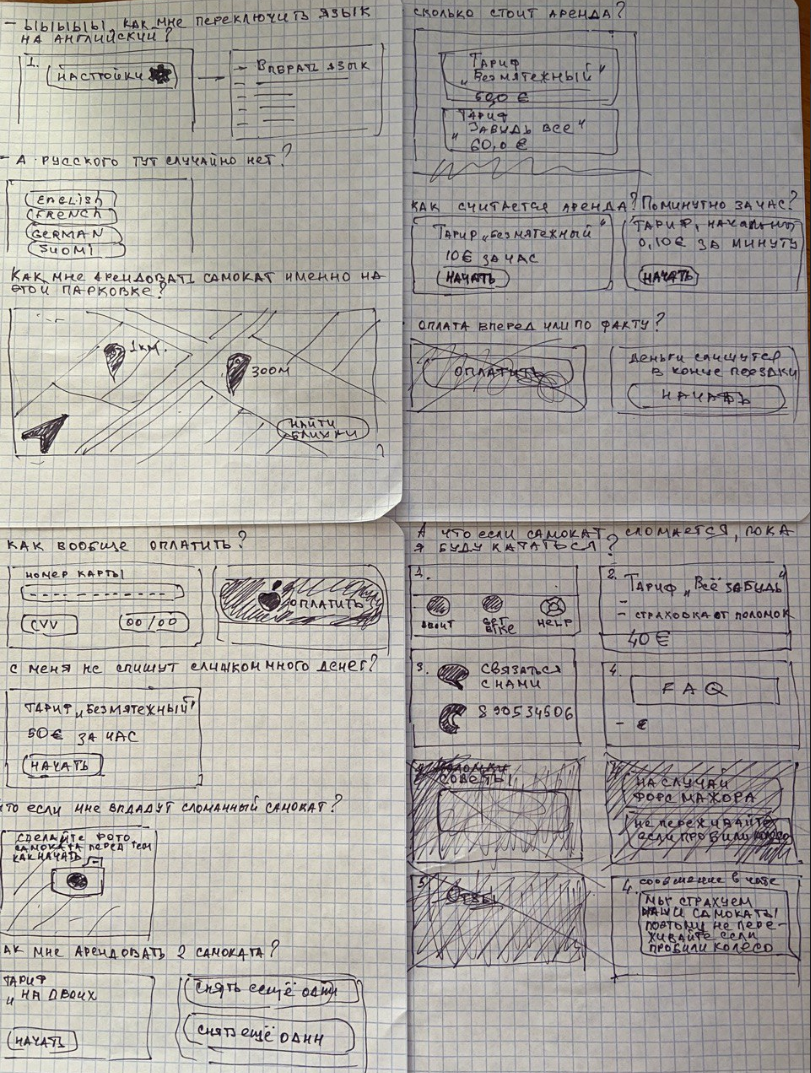 - ЫЫЫЫЫ, КАК МНЕ ПЕРЕКЛЮЧИТЬ ЯЗЫК
НА АНГЛИЙСКИЙ?
1.
НАСТРОЙКИ
- ВЫБРАТЬ ЯЗЫК
- А РУССКОГО ТУТ СЛУЧАЙНО НЕТ?
ENGLISH
FRENCH
GERMAN
SUOMI
КАК МНЕ АРЕНДОВАТЬ САМОКАТ ИМЕННО НА
ЭТОЙ ПАРКОВКЕ?
1КМ.
300М
НАЙТИ
БЛИЖКИ
СКОЛЬКО СТОИТ АРЕНДА?
ТАРИФ
„БЕЗМЯТЕЖНЫЙ"
ТАРИФ
„ЗАБУДЬ ВСЕ"
60,0 €
КАК СЧИТАЕТСЯ АРЕНДА? ПОМИНУТНО ЗА ЧАС?
ТАРИФ „БЕЗМЯТЕЖНЫЙ"
10€ ЗА ЧАС
НАЧАТЬ
ТАРИФ,
0,10€ ЗА МИНУТУ
НАЧАТЬ
ОПЛАТА ВПЕРЕД ИЛИ ПО ФАКТУ?
ОПЛАТИТЬ
ДЕНЬГИ СПИШУТСЯ
В КОНЦЕ ПОЕЗДКИ
НАЧАТЬ
КАК ВООБЩЕ ОПЛАТИТЬ?
НОМЕР КАРТЫ
CVV
00/00
ОПЛАТИТЬ
С МЕНЯ НЕ СПИШУТ СЛИШКОМ МНОГО ДЕНЕГ?
ТАРИФ „БЕЗМЯТЕЖНЫЙ"
50€ ЗА ЧАС
НАЧАТЬ
ТО ЕСЛИ МНЕ ВЫДАДУТ СЛОМАННЫЙ САМОКАТ?
СДЕЛАЙТЕ ФОТО
САМОКАТА ПЕРЕД ТЕМ
КАК НАЧАТЬ
АК МНЕ АРЕНДОВАТЬ 2 САМОКАТА?
ТАРИФ
„НА ДВОИХ
НАЧАТЬ
СНЯТЬ ЕЩЁ ОДИН
СНЯТЬ ЕЩЁ ОДИН
А ЧТО ЕСЛИ САМОКАТ СЛОМАЕТСЯ, ПОКА
Я БУДУ КАТАТЬСЯ?
1.
HELP
2.
ТАРИФ „ВСЁ ЗАБУДЬ"
- СТРАХОВКА ОТ ПОЛОМОК
40€
3.
СВЯЗАТЬСЯ
С НАМИ
890534506
4.
FAQ
СОВЕТЫ
НА СЛУЧАЙ
ФОРС МАЖОРА
НЕ ПЕРЕЖИВАЙТЕ
ЕСЛИ ПРОБИЛИ КОЛЕСО
5.
4. СООБЩЕНИЕ В ЧАТЕ
МЫ СТРАХУЕМ
НАШИ САМОКАТЫ
ПОЭТОМУ НЕ ПЕРЕ-
ЖИВАЙТЕ ЕСЛИ
ПРОБИЛИ КОЛЕСО